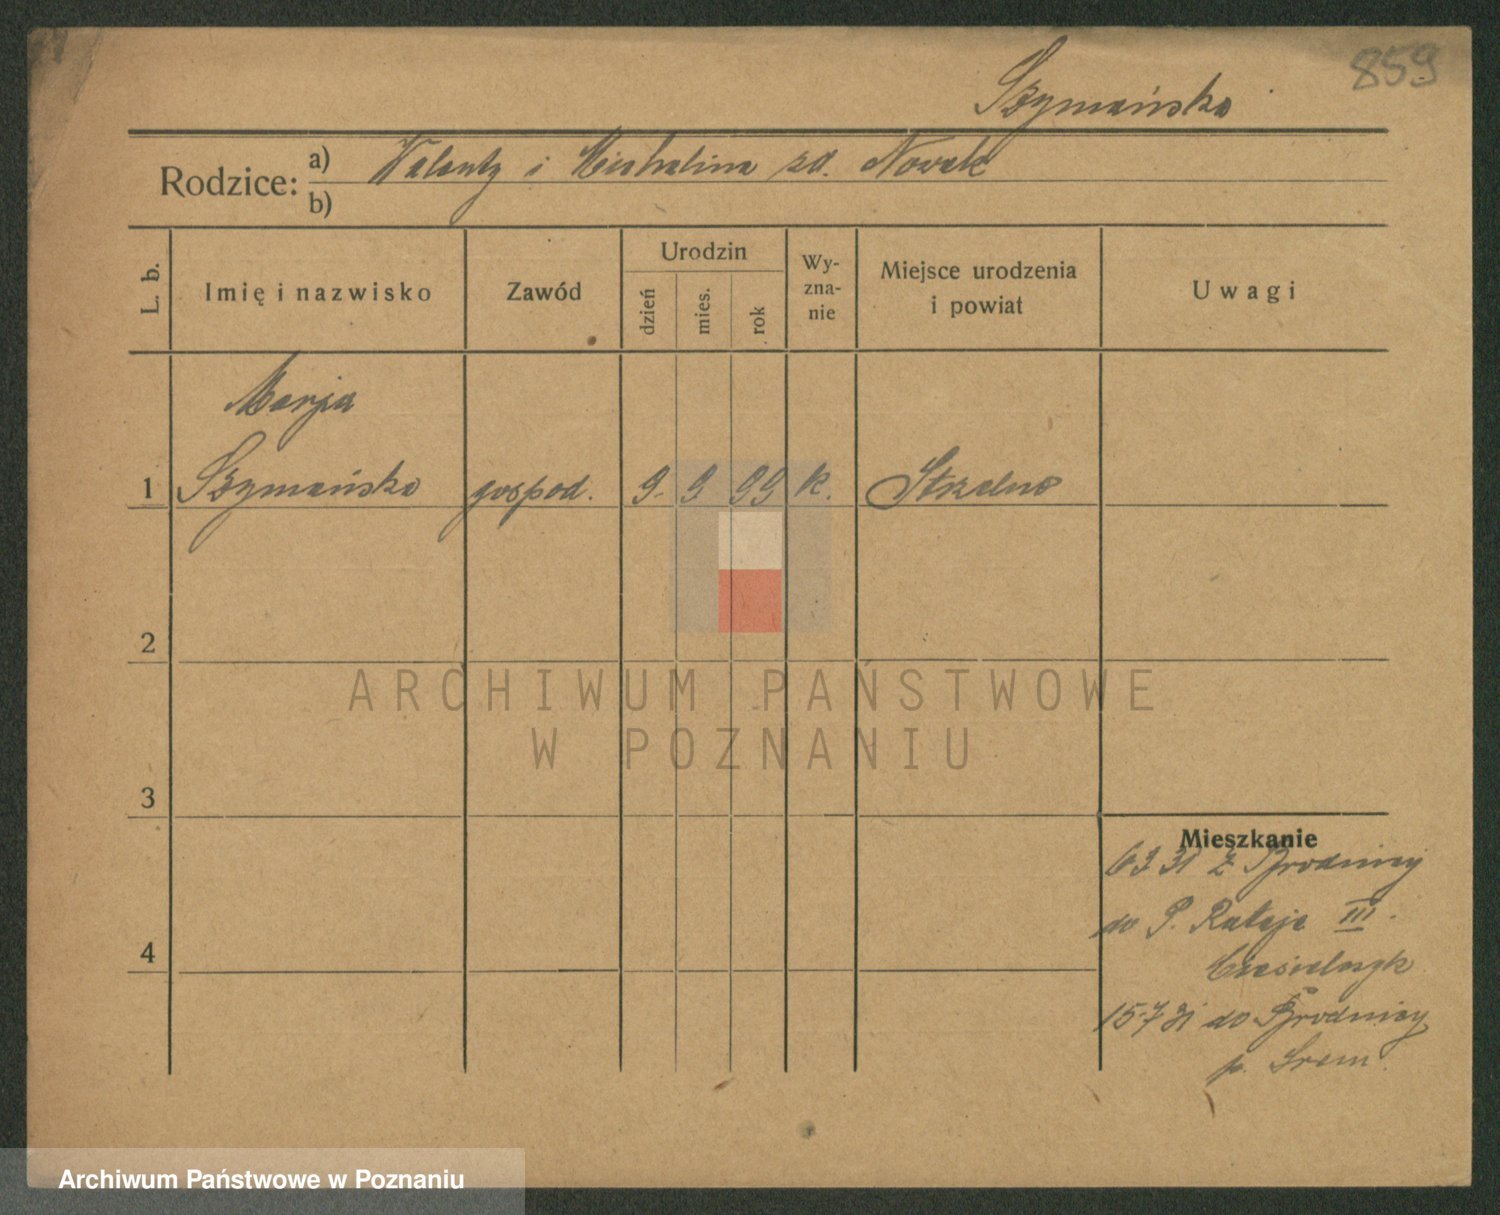 859
Szymańska
Rodzice: a) Walenty i Michalina zd. Nowak
b)
L. b.
Imię i nazwisko
Zawód
Urodzin
dzień
mies.
rok
Wy-
zna-
nie
Miejsce urodzenia
i powiat
Uwagi
Marja
1 Szymańska gospod. 9. 9 99 k. Strzelno
2
3
4
Mieszkanie
6 3 31 z Brodnicy
do P. Rataje III.
15.7 31 do Brodnicy
p. Śrem
ARCHIWUM PAŃSTWOWE
W POZNANIU
Archiwum Państwowe w Poznaniu